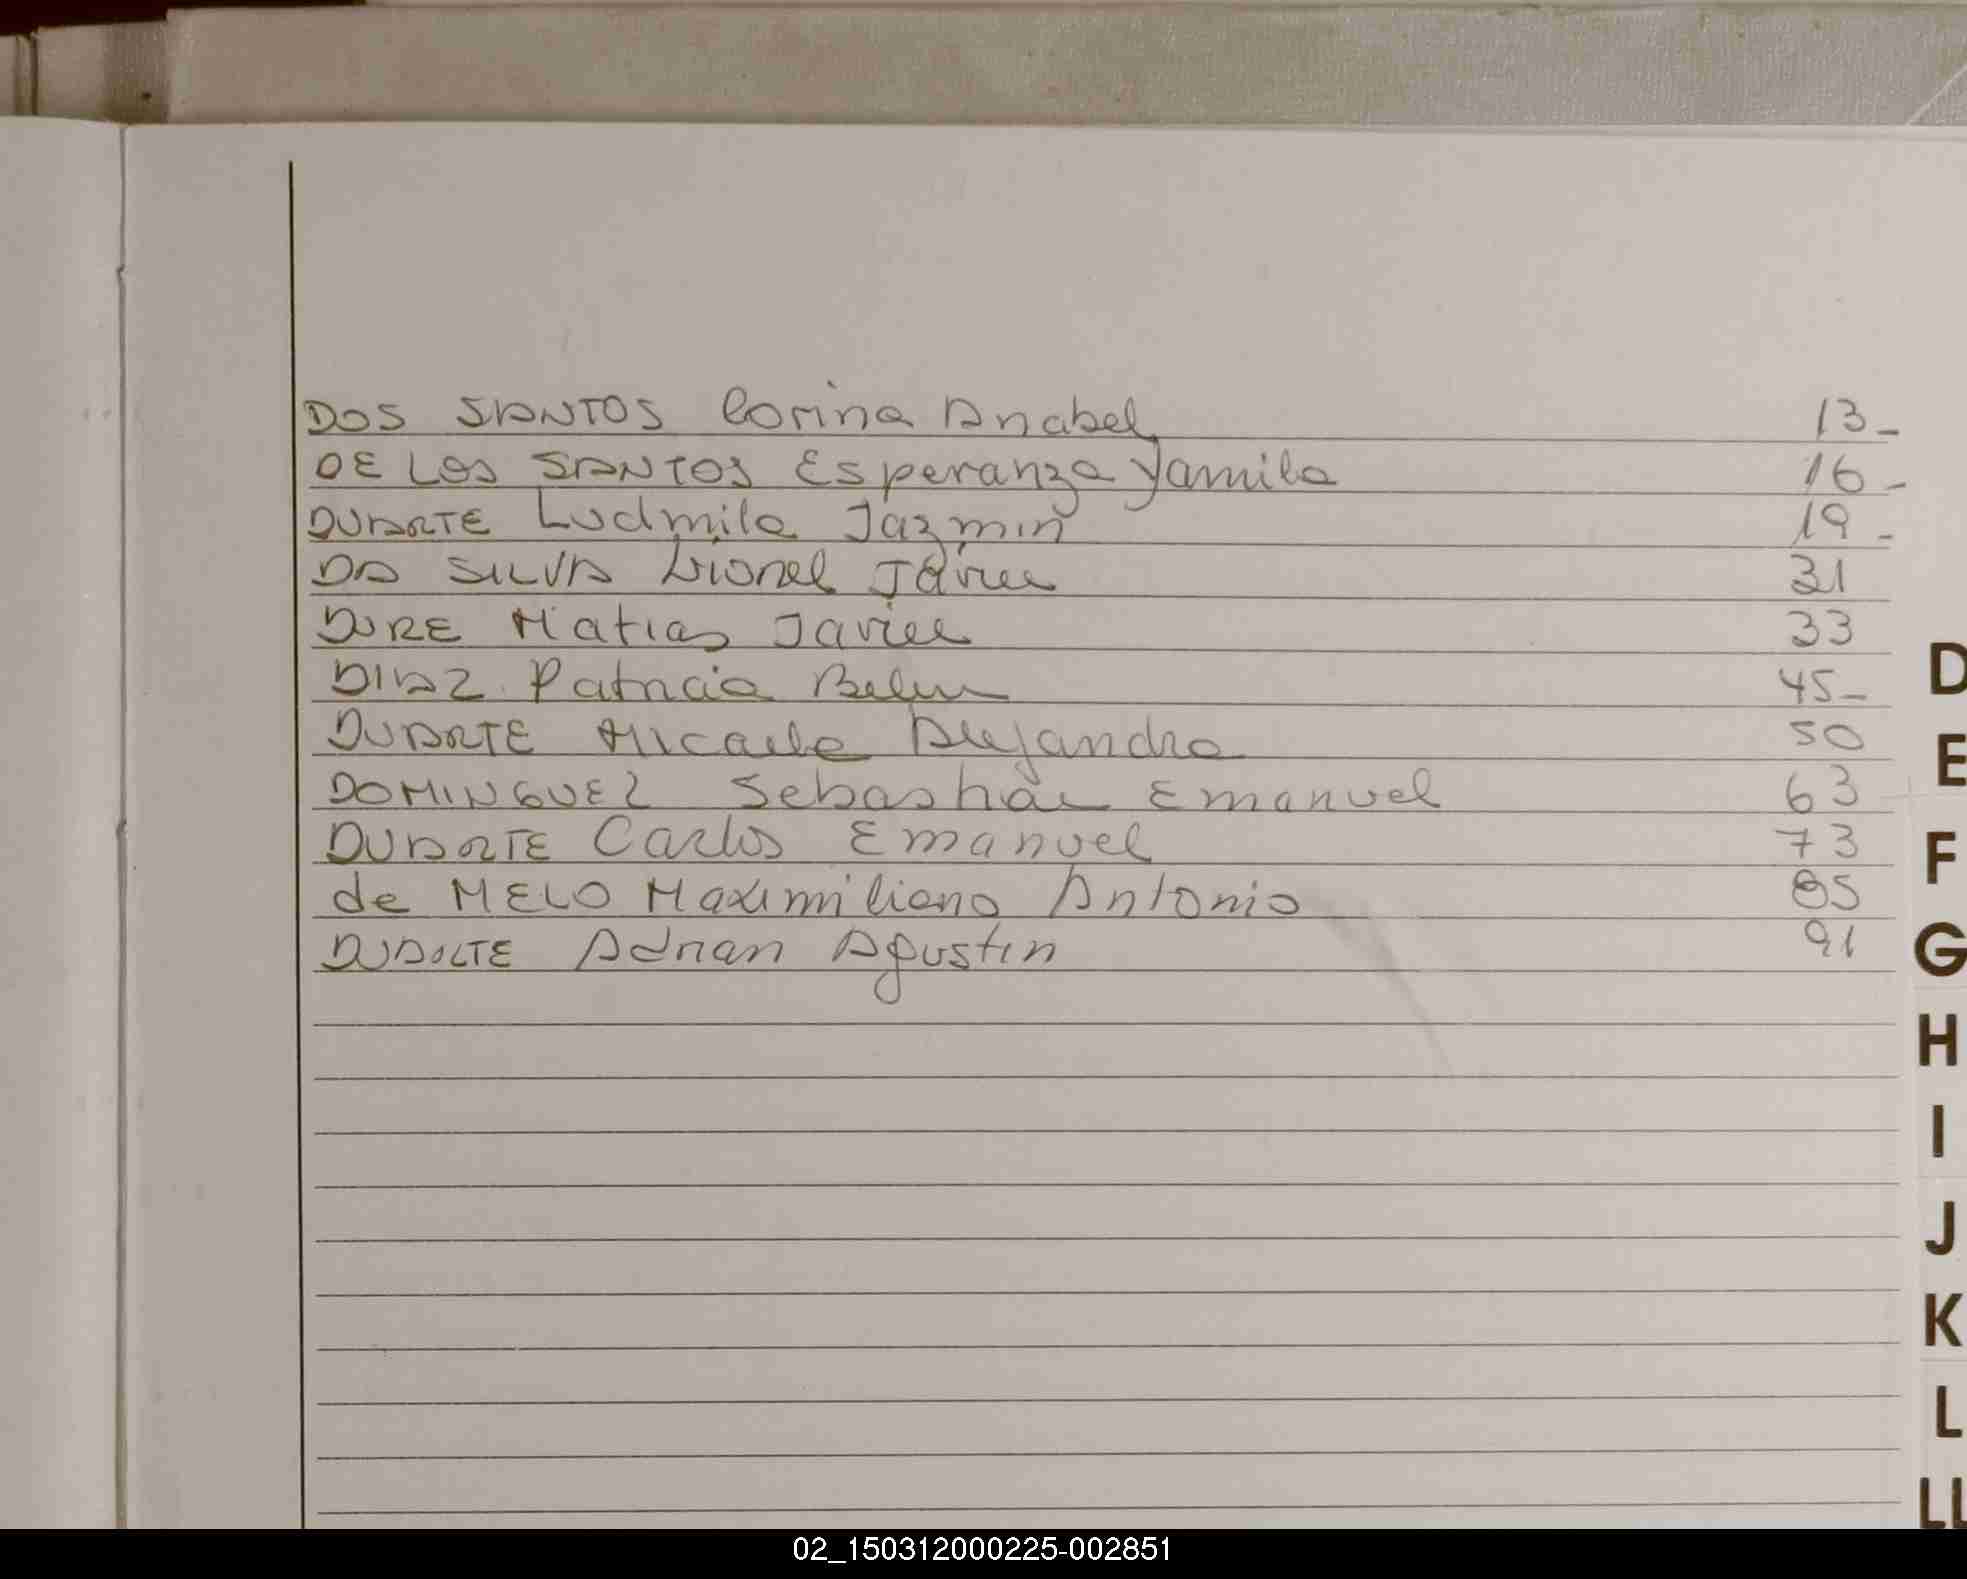 DOS SANTOS Corina Anabel 13-
DE LOS SANTOS Esperanza Yamila 16-
DUARTE Ludmila Jazmin 19-
DA SILVA Lionel Javier 31
DURE Matias Javier 33
DIAZ Patricia Belen 45-
DUARTE Micaela Alejandra 50
DOMINGUEZ Sebastian Emanuel 63
DUARTE Carlos Emanuel 73
de MELO Maximiliano Antonio 85
DUARTE Adrian Agustin 91
D
E
F
G
H
I
J
K
L
LL
02_150312000225-002851